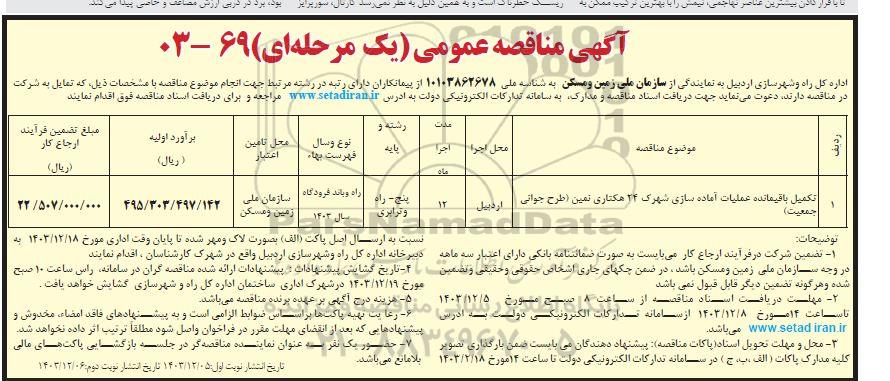 تا با قرار دادن بیشترین عناصر تهاجمی، تیمش را با بهترین ترکیب ممکن به
ریسک خطرناک است و به همین دلیل به نظر نمی‌رسد کارتال، سورپرایز
بود، برد در دربی ارزش مضاعف و خاصی پیدا می‌کند.
آگهی مناقصه عمومی (یک مرحله‌ای) ۶۹ -۰۳
اداره کل راه وشهرسازی اردبیل به نمایندگی از سازمان ملی زمین ومسکن به شناسه ملی ۱۰۱۰۳۸۶۲۶۷۸ از پیمانکاران دارای رتبه در رشته مرتبط جهت انجام موضوع مناقصه با مشخصات ذیل، که تمایل به شرکت
در مناقصه دارند، دعوت می‌نماید جهت دریافت اسناد مناقصه و مدارک، به سامانه تدارکات الکترونیکی دولت به ادرس www.setadiran.ir مراجعه و برای دریافت اسناد مناقصه فوق اقدام نمایند
ردیف
موضوع مناقصه
محل اجرا
مدت اجرا ماه
رشته و پایه
نوع وسال فهرست بهاء
محل تامین اعتبار
برآورد اولیه (ریال)
مبلغ تضمین فرآیند ارجاع کار (ریال)
۱
تکمیل باقیمانده عملیات آماده سازی شهرک ۲۴ هکتاری نمین (طرح جوانی جمعیت)
اردبیل
۱۲
پنج- راه وترابری
راه وباند فرودگاه سال ۱۴۰۳
سازمان ملی زمین ومسکن
۴۹۵/۳۰۳/۴۹۷/۱۴۲
۲۲/۵۰۷/۰۰۰/۰۰۰
توضیحات:
۱- تضمین شرکت درفرآیند ارجاع کار می‌بایست به صورت ضمانتنامه بانکی دارای اعتبار سه ماهه
در وجه سازمان ملی زمین ومسکن باشد، در ضمن چکهای جاری اشخاص حقوقی وحقیقی وتضمین
شده وهرگونه تضمین دیگر قابل قبول نمی باشد
۲- مهلت دریافت اسناد مناقصه از ساعت ۸ صبح مورخ ۱۴۰۳/۱۲/۵
تاساعت ۱۴مورخ ۱۴۰۳/۱۲/۸ ازسامانه تدارکات الکترونیکی دولت به ادرس
www.setad iran.ir می‌باشد.
۳- محل و مهلت تحویل اسناد(پاکات مناقصه): پیشنهاد دهندگان می بایست ضمن بارگذاری تصویر
کلیه مدارک پاکات ( الف، ب، ج ) در سامانه تدارکات الکترونیکی دولت تا ساعت ۱۴مورخ ۱۴۰۳/۱۲/۱۸
نسبت به ارسال اصل پاکت (الف) بصورت لاک ومهر شده تا پایان وقت اداری مورخ ۱۴۰۳/۱۲/۱۸ به
دبیرخانه اداره کل راه وشهرسازی اردبیل واقع در شهرک کارشناسان ، اقدام نمایند
۴-تاریخ گشایش پیشنهادات : پیشنهادات ارائه شده مناقصه گران در سامانه، راس ساعت ۱۰ صبح
مورخ ۱۴۰۳/۱۲/۱۹ درشهرک اداری ساختمان اداره کل راه و شهرسازی گشایش خواهد یافت .
۵- هزینه درج آگهی بر عهده برنده مناقصه می‌باشد.
۶- رعایت تهیه پاکت‌ها براساس ضوابط الزامی است و به پیشنهادهای فاقد امضاء، مخدوش و
پیشنهادهایی که بعد از انقضای مهلت مقرر در فراخوان واصل شود مطلقاً ترتیب اثر داده نخواهد شد.
۷- حضور یک نفر به عنوان نماینده مناقصه‌گر در جلسه بازگشایی پاکت‌های مالی
بلامانع می‌باشد.
تاریخ انتشار نوبت اول:۱۴۰۳/۱۲/۰۵ تاریخ انتشار نوبت دوم:۱۴۰۳/۱۲/۰۶
ParsNamadData